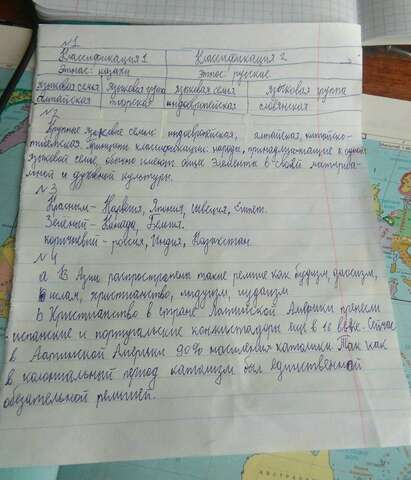 №1
Классификация 1 Классификация 2
Этнос: казахи Этнос: русские
языковая семья языковая группа языковая семья языковая группа
алтайская тюркская индоевропейская славянская
№2
Крупные языковые семьи: индоевропейская, алтайская, китайско-
тибетская. Принципы классификации: народы, принадлежащие к одной
языковой семье, обычно имеют общие элементы в своей материа-
льной и духовной культуры.
№3
Красным - Норвегия, Япония, Швеция, Египет.
Зеленый - Канада,
коричневый - россия, Индия, Казахстан.
№4
а В Азии распространены такие религии как буддизм, даосизм,
ислам, христианство, индуизм, иудаизм
b Христианство в стране Латинской Америки принесли
испанские и португальские конкистадоры еще в 16 веке. Сейчас
в Латинской Америки 90% населения католики. Так как
в колониальный период католизм был единственной
обязательной религией.